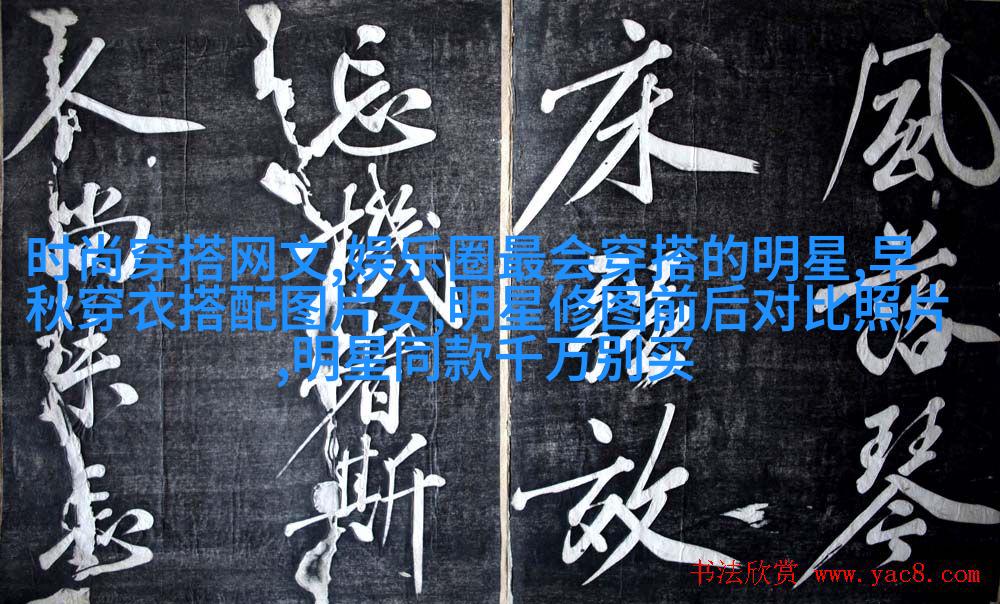 風落琴
床
忘機者斯
时尚穿搭网文,娱乐圈最会穿搭的明星,早
秋穿衣搭配图片女,明星修图前后对比照片
,明星同款千万别买
书法欣赏 www.yac8.com